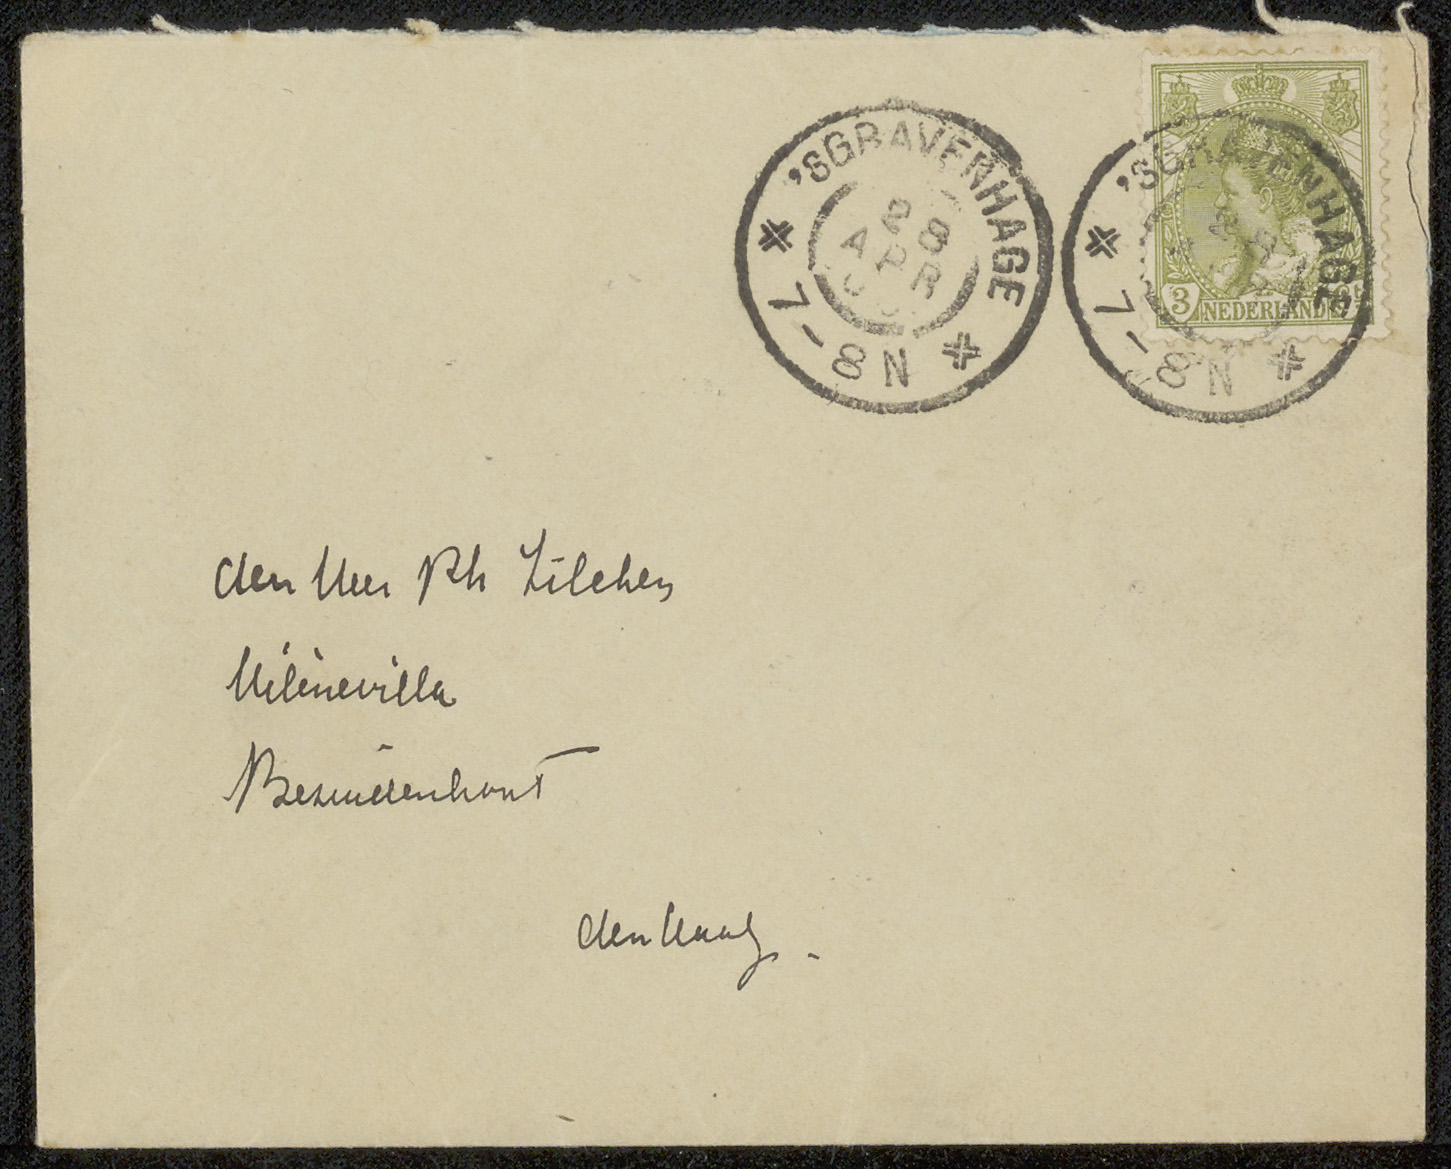 'SGRAVENHAGE
28
APR
7-8N
'SGRAVENHAGE
7-8N
3
NEDERLAND
den Heer Ph Zilcken
Hélènevilla
Bezuidenhout
den Haag.